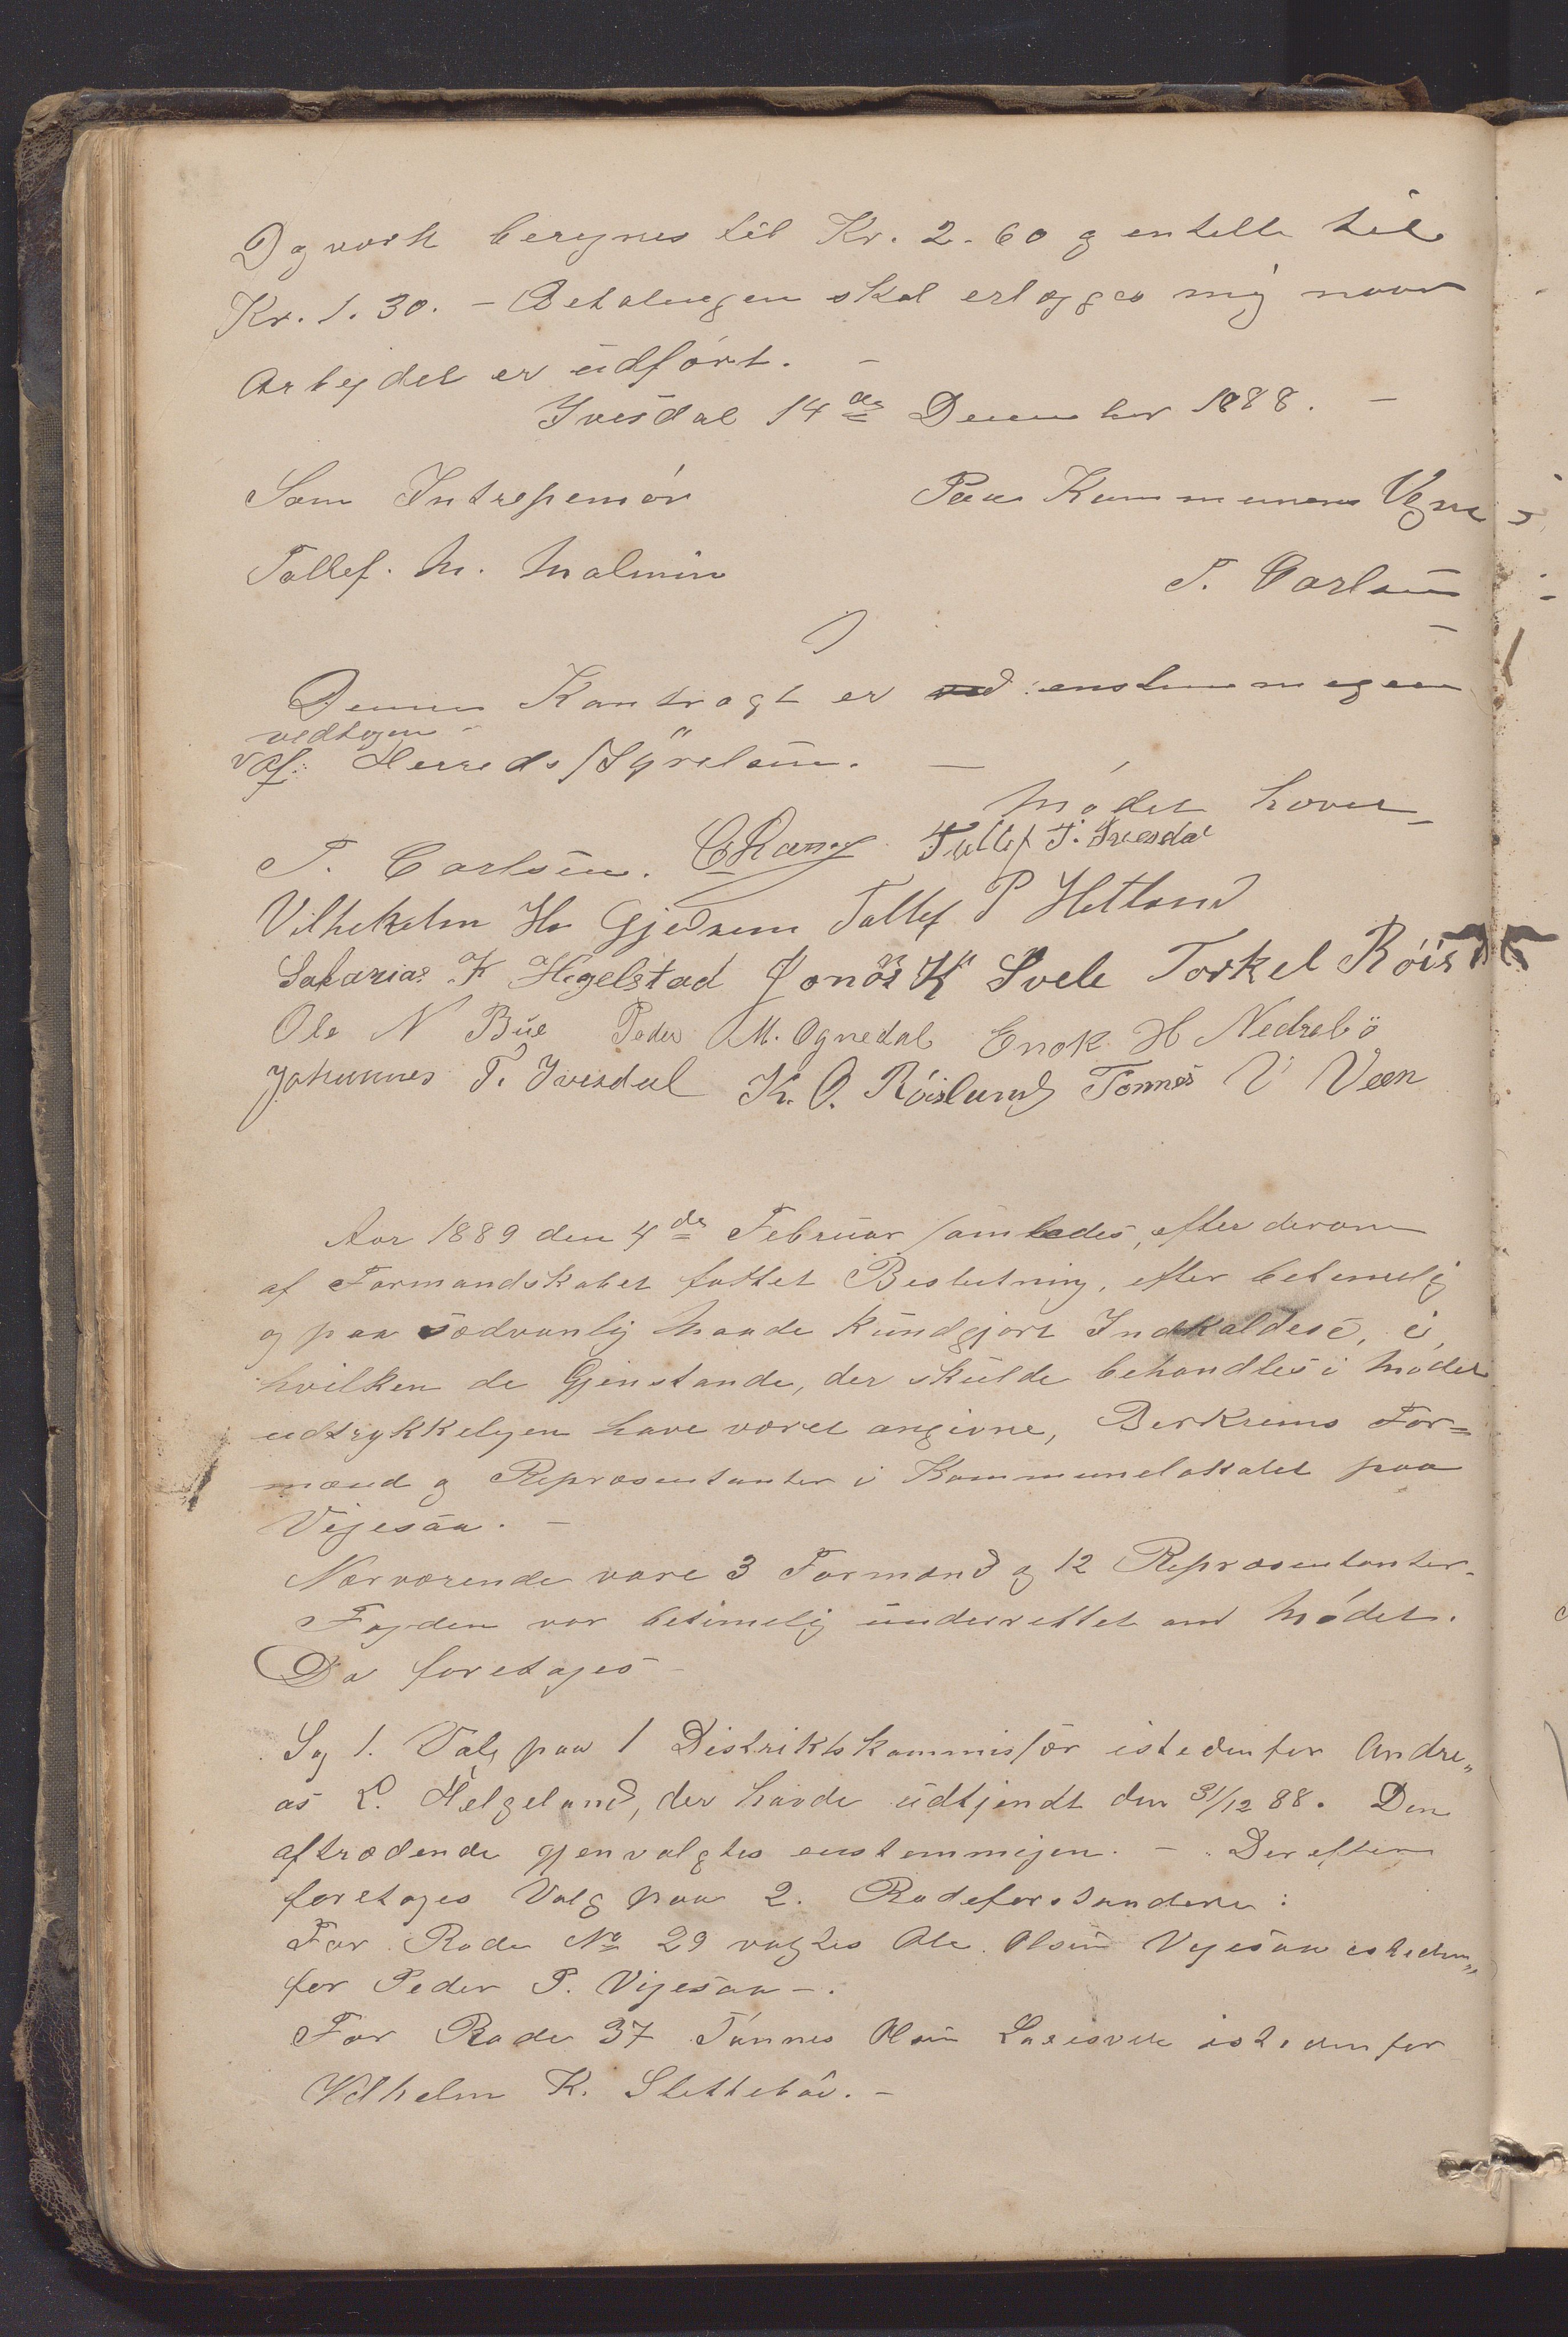 Dagverk beregnes til Kr. 2.60 g enkelte til
Kr. 1.30. - Betalingen skal erlægges mig naar
Arbejdet er udført. -
Ivesdal 14de December 1888. -
Som Intrepenør Paa Kommunens Vegne
Tollef. M. Malmin T. Carlsen
Denne Kontragt er ved enstemmigen
vedtagen
af Herredsstyrelsen. -
Mødet hævet
T. Carlsen. Tollef T. Ivesdal
Vilhelm H. Gjedrem Tollef P Hetland
Sakarias K Hegelstad Jonas K Svele Torkel Røis
Ole N Bue Peder M. Ognedal Enok H Nedrebö
Johannes T. Ivesdal K. O. Röislund Tonnes V Veen
Aar 1889 den 4de Februar samledes, efter derom
af Formandskabet fattet Beslutning, efter betimelig
og paa sædvanlig Maade kundgjort Indkaldese, i
hvilken de Gjenstande, der skulde behandles i Mødet
udtrykkelgen have været angivne, Birkrems For=
mænd g Repræsentanter i Kommunelokalet paa
Vigesaa. -
Nærværende vare 3 Formænd g 12 Repræsentanter.
Fogden var betimelig underrettet om Mødet.
Da foretages
Sag 1. Valg paa 1 Distriktskommissær istedenfor Andre„
as L. Helgeland, der havde udtjendt den 31/12 88. Den
aftrædende gjenvalgtes enstemmigen. - Derefter
foretages Valg paa 2. Rodeforstandere:
For Rode No 29 valgtes Ole Olsen Vigesaa isteden„
for Peder P. Vigesaa -.
For Rode 37 Tönnes Olsen istedenfor
Vilhelm K. Slettebøe. -